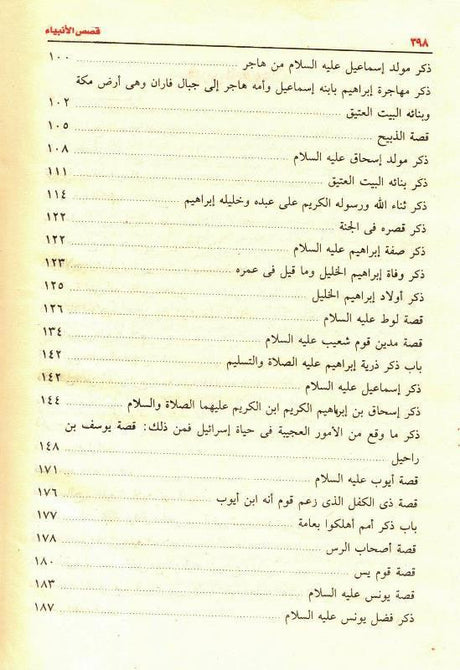 قصص الأنبياء
٣٩٨
ذكر مولد إسماعيل عليه السلام من هاجر ١٠٠
ذكر مهاجرة إبراهيم بابنه إسماعيل وأمه هاجر إلى جبال فاران وهى أرض مكة
وبنائه البيت العتيق ١٠٢
قصة الذبيح ١٠٥
ذكر مولد إسحاق عليه السلام ١٠٨
ذكر بنائه البيت العتيق ١١١
ذكر ثناء الله ورسوله الكريم على عبده وخليله إبراهيم ١١٤
ذكر قصره فى الجنة ١٢٢
ذكر صفة إبراهيم عليه السلام ١٢٢
ذكر وفاة إبراهيم الخليل وما قيل فى عمره ١٢٣
ذكر أولاد إبراهيم الخليل ١٢٥
قصة لوط عليه السلام ١٢٦
قصة مدين قوم شعيب عليه السلام ١٣٤
باب ذكر ذرية إبراهيم عليه الصلاة والتسليم ١٤٢
ذكر إسماعيل عليه السلام ١٤٢
ذكر إسحاق بن إبراهيم الكريم ابن الكريم عليهما الصلاة والسلام ١٤٤
ذكر ما وقع من الأمور العجيبة فى حياة إسرائيل فمن ذلك: قصة يوسف بن
راحيل ١٤٨
قصة أيوب عليه السلام ١٧١
قصة ذى الكفل الذى زعم قوم أنه ابن أيوب ١٧٦
باب ذكر أمم أهلكوا بعامة ١٧٧
قصة أصحاب الرس ١٧٨
قصة قوم يس ١٨٠
قصة يونس عليه السلام ١٨٣
ذكر فضل يونس عليه السلام ١٨٧